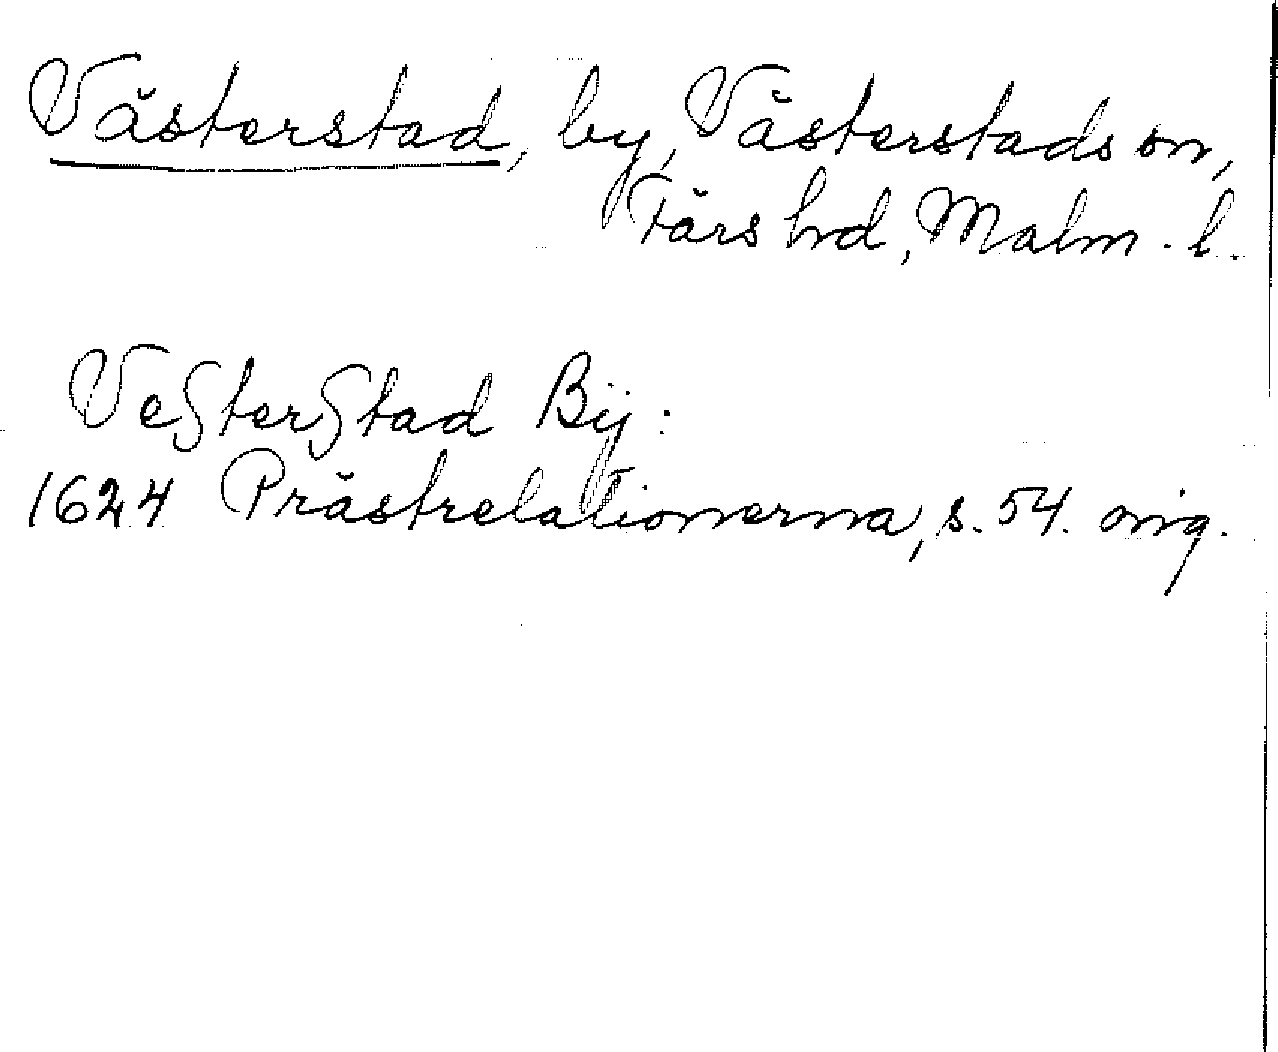 Västerstad, by, Västerstads sn,
Färs hd, Malm. l.
VeſterſtadBÿ:
1624 Prästrelationerna, s. 54. orig.